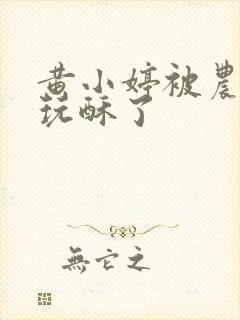 黄小婷被農
玩酥了
無它之